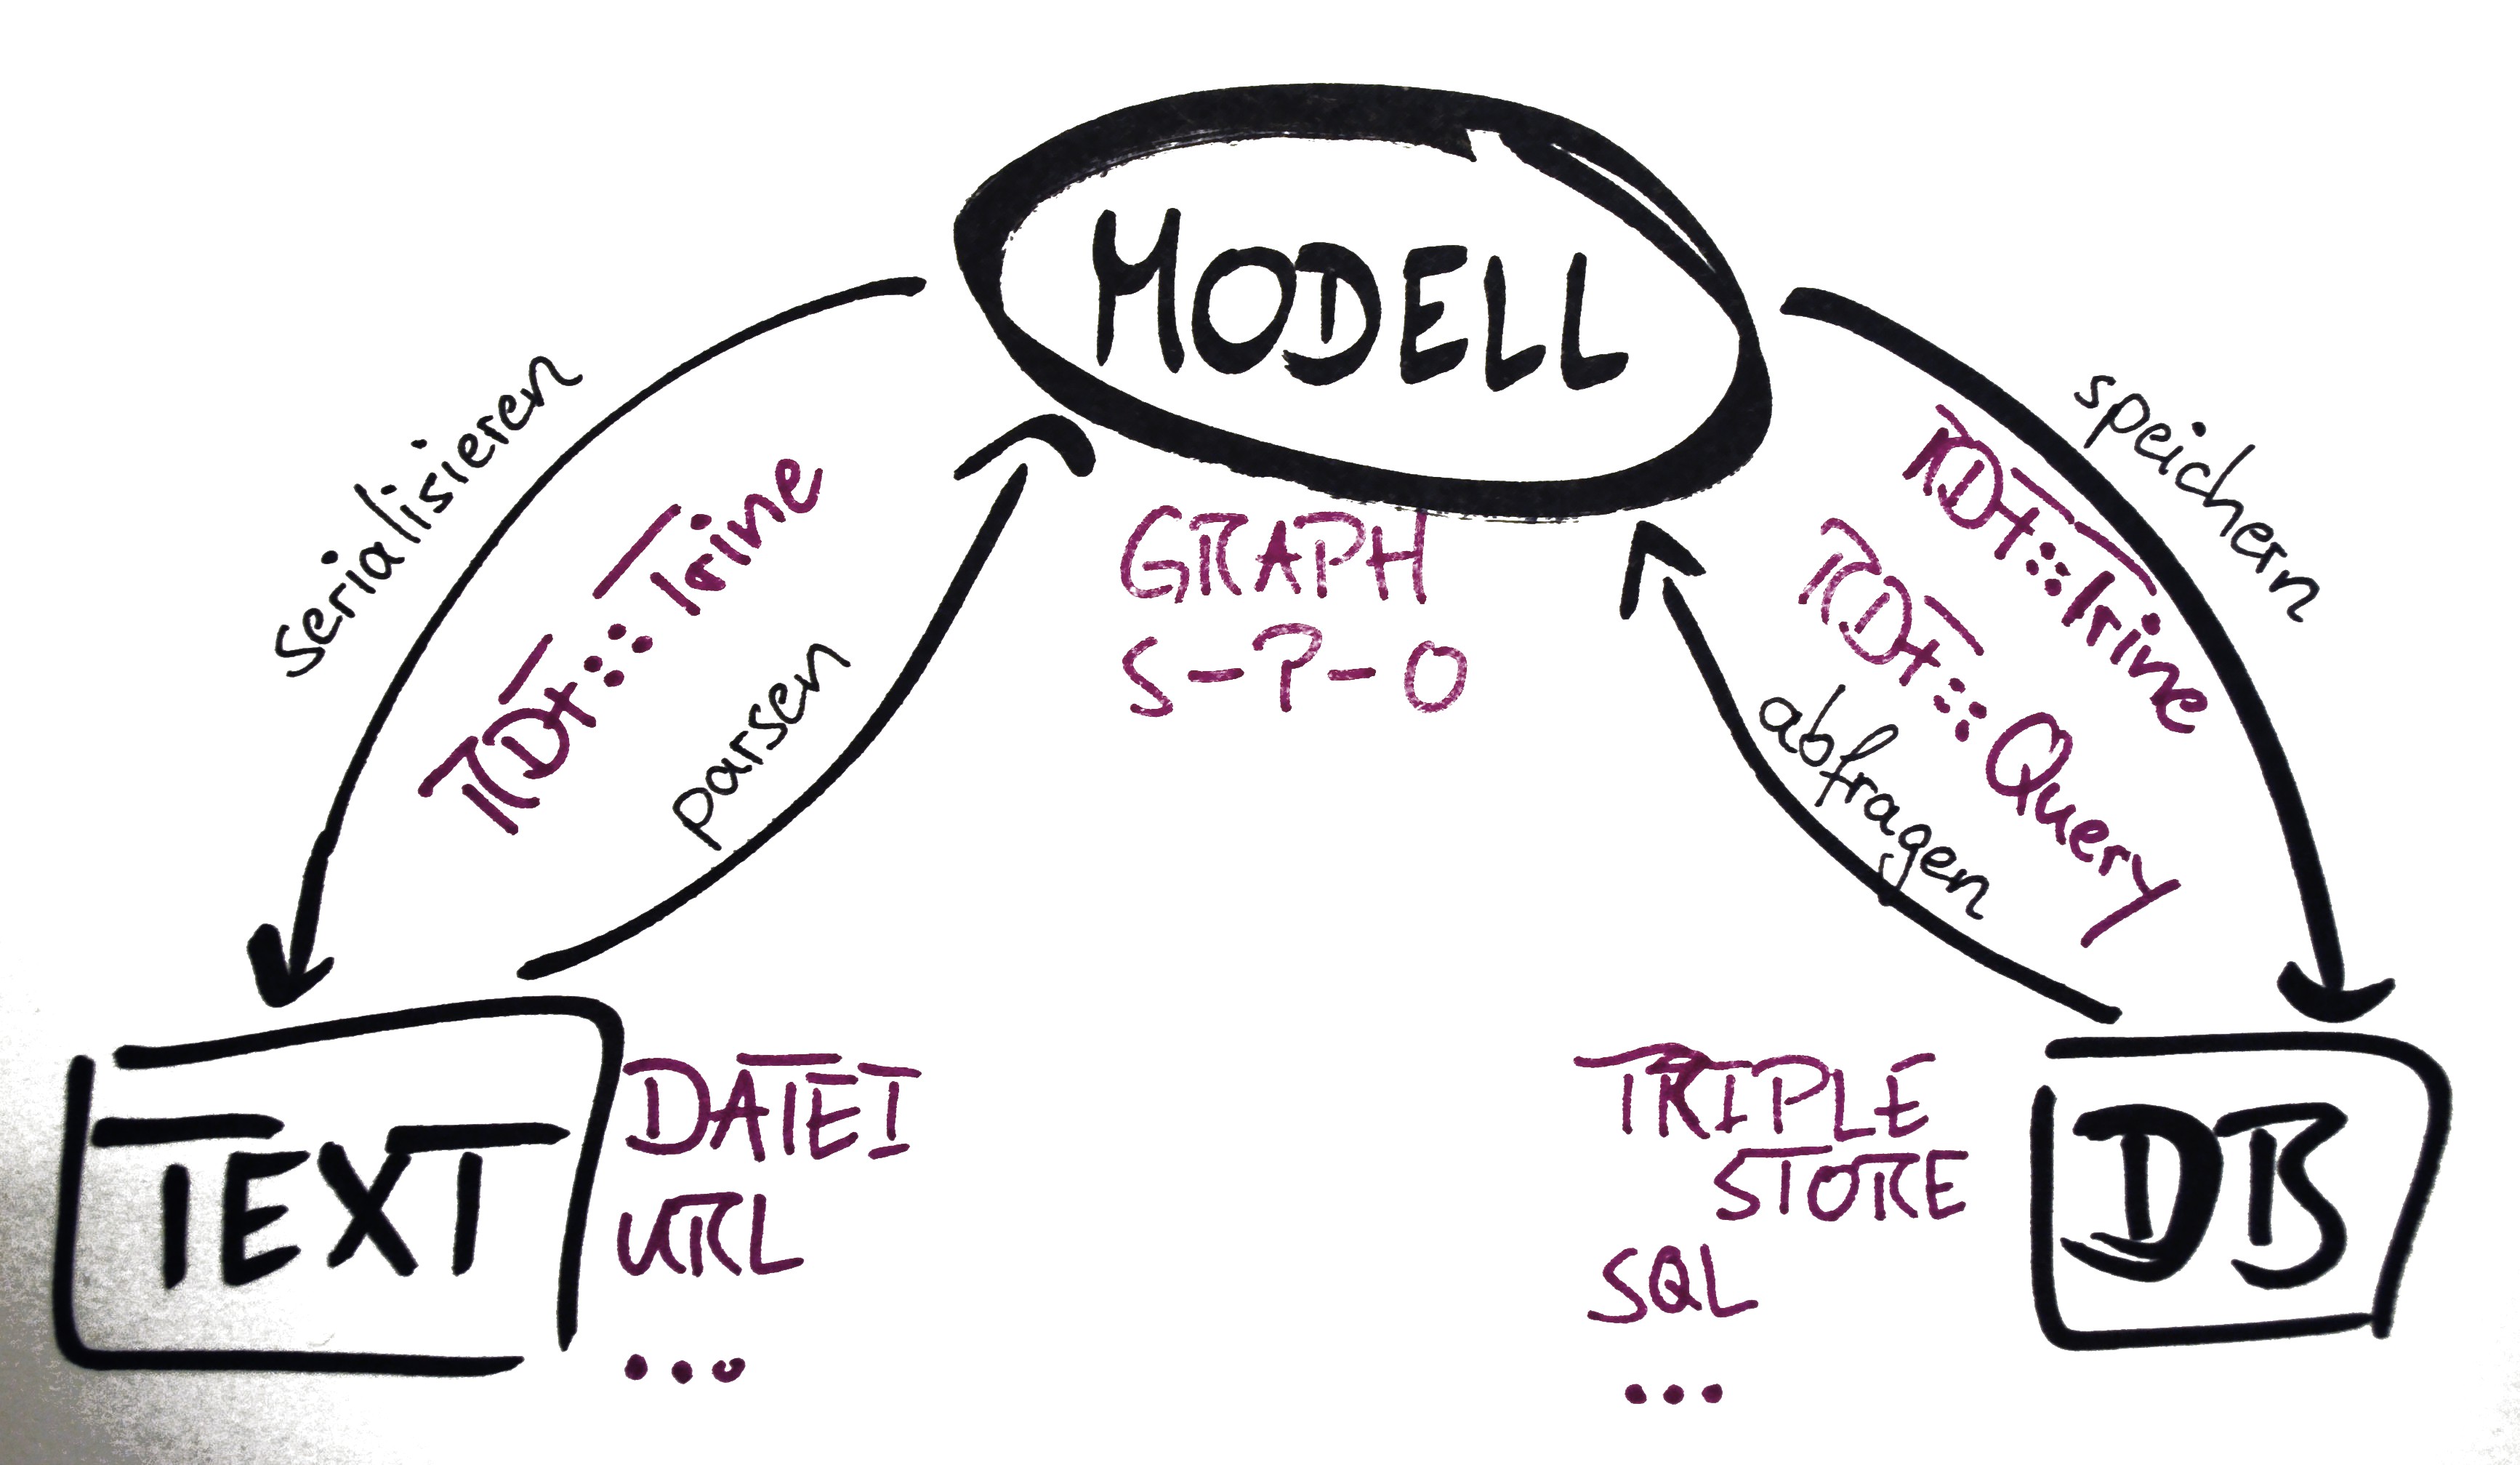 MODELL
GRAPH
S-P-O
serialisieren
RDF::Trine
parsen
speichern
RDF::Trine
RDF::Query
abfragen
TEXT
DATEI
URL
...
TRIPLE
STORE
SQL
...
DB